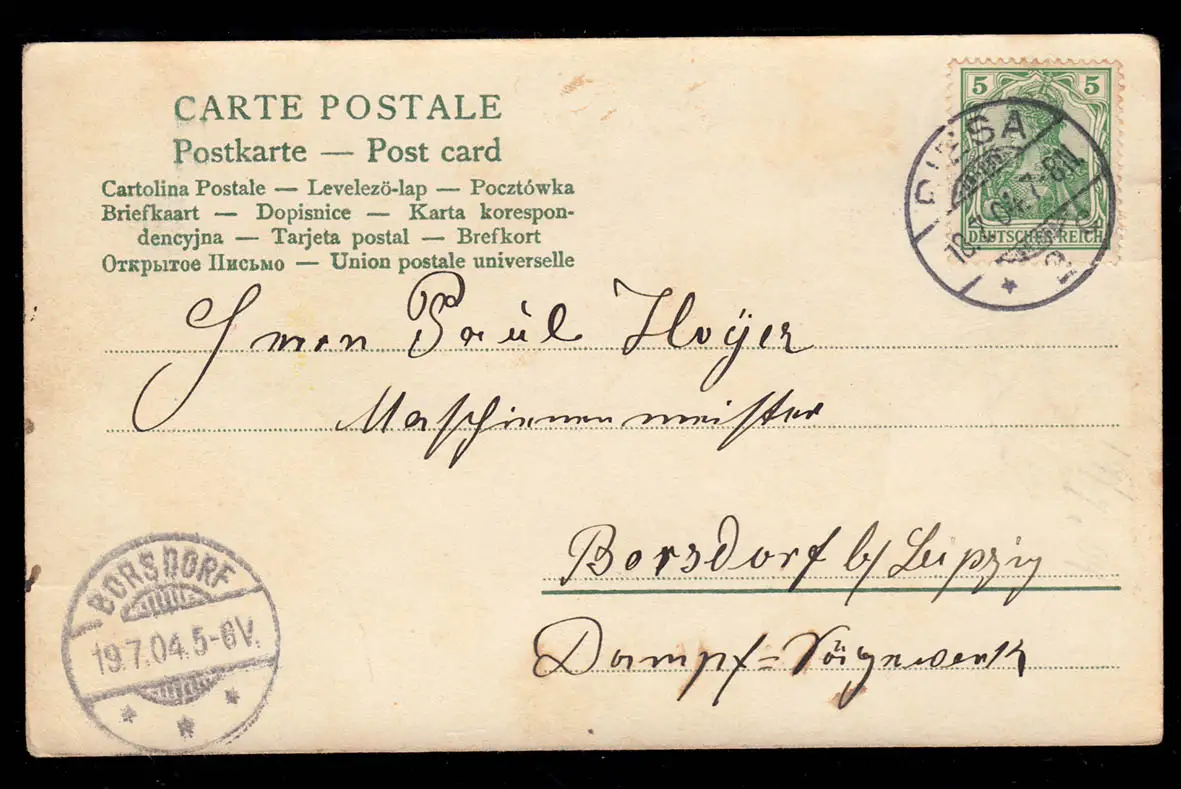 CARTE POSTALE
Postkarte — Post card
Cartolina Postale — Levelezö-lap — Pocztówka
Briefkaart — Dopisnice — Karta korespon-
dencyjna — Tarjeta postal — Brefkort
Открытое Письмо — Union postale universelle
5 5
DEUTSCHES REICH
RIESA
Herrn Paul Hoÿer
Maschinenmeister
Borsdorf b/ Leipzig
Dampf=Sägewerk
BORSDORF
19.7.04.5-6V.